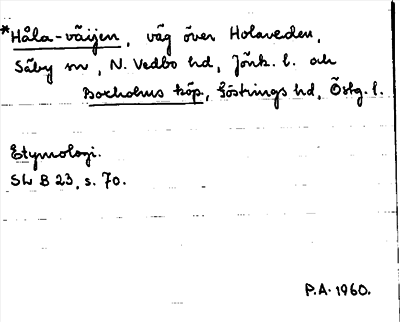 *Håla-väijen, väg över Holaveden,
Säby sn, N. Vedbo hd, Jönk. l. och
Boxholms köp, Göstrings hd, Östg. l.
Etymologi.
SL B 23, s. 70.
P.A. 1960.